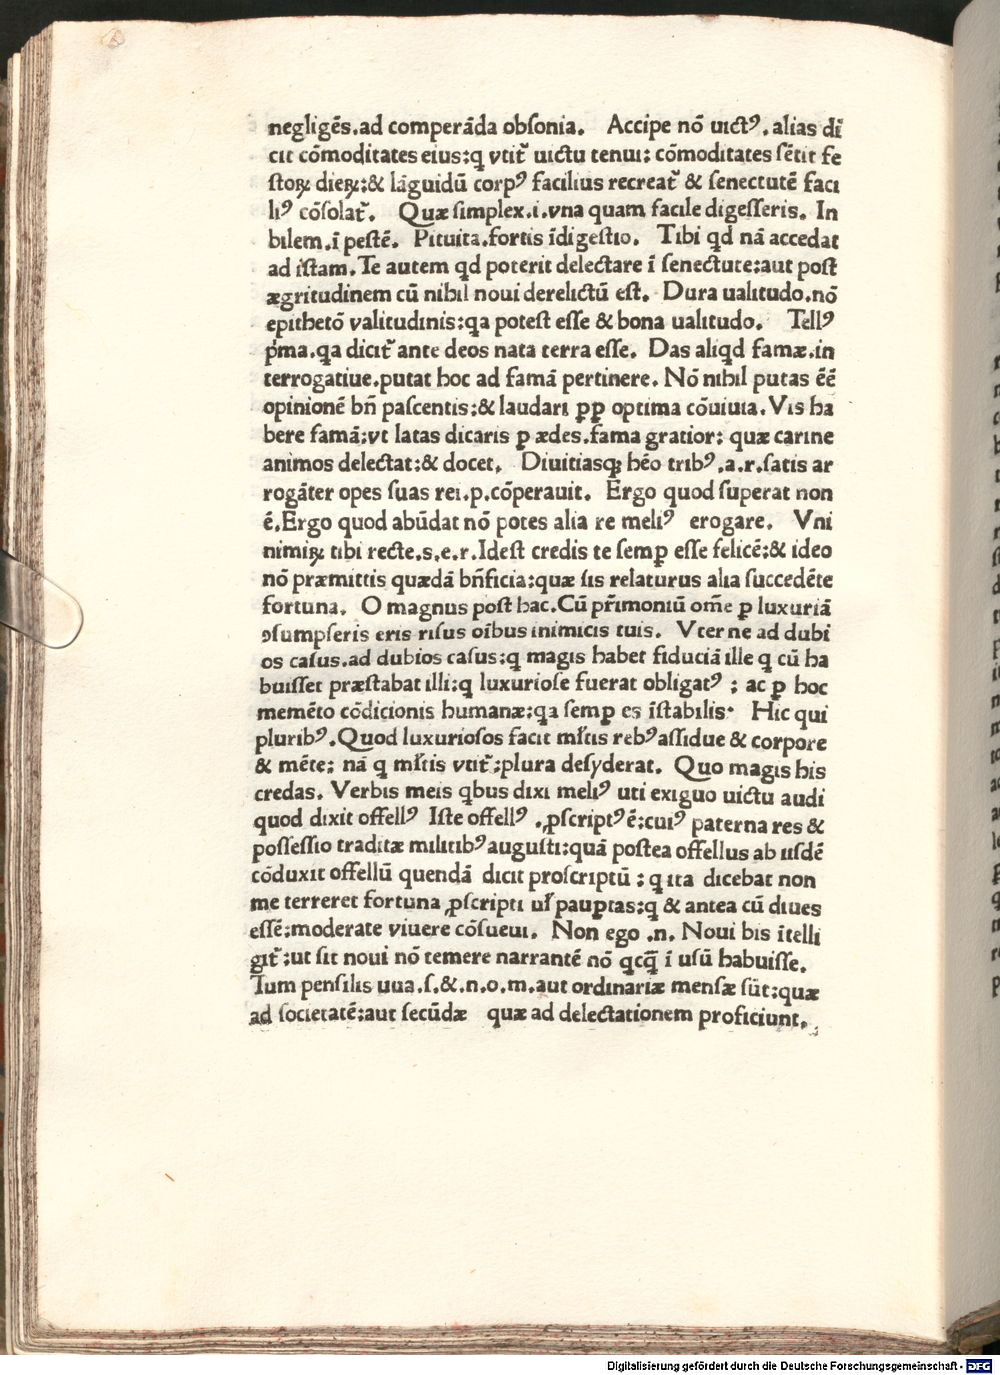 negligēs.ad comperāda obſonia. Accipe nō uictꝰ. alias di
cit cōmoditates eius:q vtit᷑ uictu tenui: cōmoditates ſētit fe
ſtoꝝ dieꝝ:& lāguidū corpꝰ facilius recreat᷑ & ſenectutē faci
liꝰ cōſolat᷑. Quæ ſimplex.i.vna quam facile digeſſeris. In
bilem.ī peſtē. Pituita.fortis īdigeſtio. Tibi qd nā accedat
ad iſtam. Te autem qd poterit delectare ī ſenectute:aut poſt
ægritudinem cū nihil noui derelictū eſt. Dura ualitudo.nō
epithetō valitudinis:qa poteſt eſſe & bona ualitudo. Tellꝰ
p̄ma.qa dicit᷑ ante deos nata terra eſſe. Das aliqd famæ.in
terrogatiue.putat hoc ad famā pertinere. Nō nihil putas ēē
opinionē bn̄ paſcentis:& laudari ꝓp optima cōuiuia. Vis ha
bere famā:vt latas dicaris ꝑ ædes.fama gratior: quæ carine
animos delectat:& docet. Diuitiasqꝫ hēo tribꝰ.a.r.ſatis ar
rogāter opes ſuas rei.p.cōperauit. Ergo quod ſuperat non
ē.Ergo quod abūdat nō potes alia re meliꝰ erogare. Vni
nimiꝝ tibi recte.s.e.r.Ideſt credis te ſemꝑ eſſe felicē:& ideo
nō præmittis quædā bn̄ficia:quæ ſis relaturus alia ſuccedēte
fortuna. O magnus poſt hac.Cū pr̄imoniū om̄e ꝑ luxuriā
ꝯſumpſeris eris riſus oībus inimicis tuis. Vter ne ad dubi
os caſus.ad dubios caſus:q magis habet fiduciā ille q cū ha
buiſſet præſtabat illi:q luxurioſe fuerat obligatꝰ : ac ꝑ hoc
memēto cōdicionis humanæ:qa ſemꝑ es īſtabilis. Hic qui
pluribꝰ.Quod luxurioſos facit ml̄tis rebꝰ aſſidue & corpore
& mēte: nā q ml̄tis vtit᷑:plura deſyderat. Quo magis his
credas. Verbis meis qbus dixi meliꝰ uti exiguo uictu audi
quod dixit offellꝰ Iſte offellꝰ .ꝓſcriptꝰ ē:cuiꝰ paterna res &
poſſeſſio traditæ militibꝰ auguſti:quā poſtea offellus ab iiſdē
cōduxit offellū quendā dicit proſcriptū : q ita dicebat non
me terreret fortuna ꝓſcripti ul̄ pauꝑtas:q & antea cū diues
eſſē:moderate viuere cōſueui. Non ego .n. Noui his ītelli
git᷑:ut ſit noui nō temere narrantē nō qcq̄ ī uſū habuiſſe.
Tum penſilis uua.ſ.&.n.o.m.aut ordinariæ menſæ ſūt:quæ
ad ſocietatē:aut ſecūdæ quæ ad delectationem proficiunt.
Digitalisierung gefördert durch die Deutsche Forschungsgemeinschaft - DFG